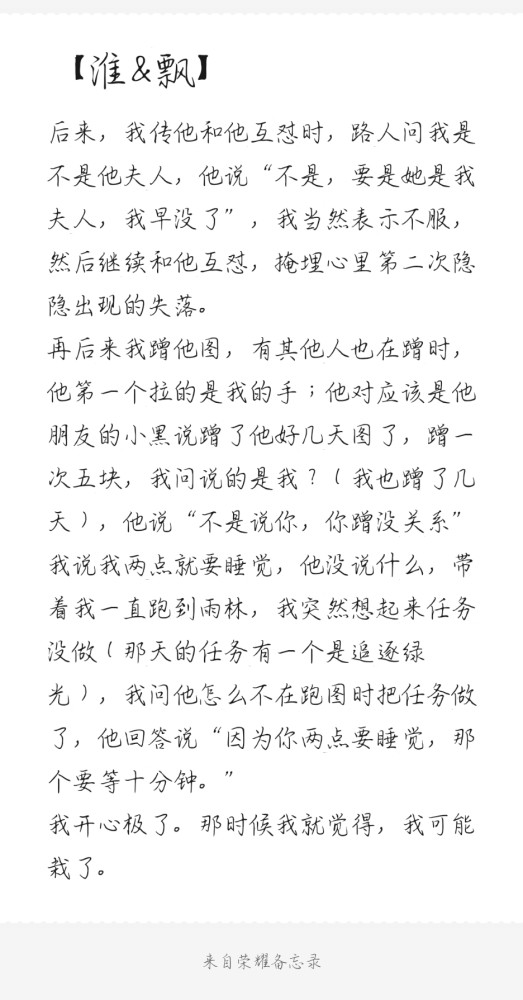 【淮&飘】
后来，我传他和他互怼时，路人问我是
不是他夫人，他说“不是，要是她是我
夫人，我早没了”，我当然表示不服，
然后继续和他互怼，掩埋心里第二次隐
隐出现的失落。
再后来我蹭他图，有其他人也在蹭时，
他第一个拉的是我的手；他对应该是他
朋友的小黑说蹭了他好几天图了，蹭一
次五块，我问说的是我？（我也蹭了几
天），他说“不是说你，你蹭没关系”
我说我两点就要睡觉，他没说什么，带
着我一直跑到雨林，我突然想起来任务
没做（那天的任务有一个是追逐绿
光），我问他怎么不在跑图时把任务做
了，他回答说“因为你两点要睡觉，那
个要等十分钟。”
我开心极了。那时候我就觉得，我可能
栽了。
来自荣耀备忘录